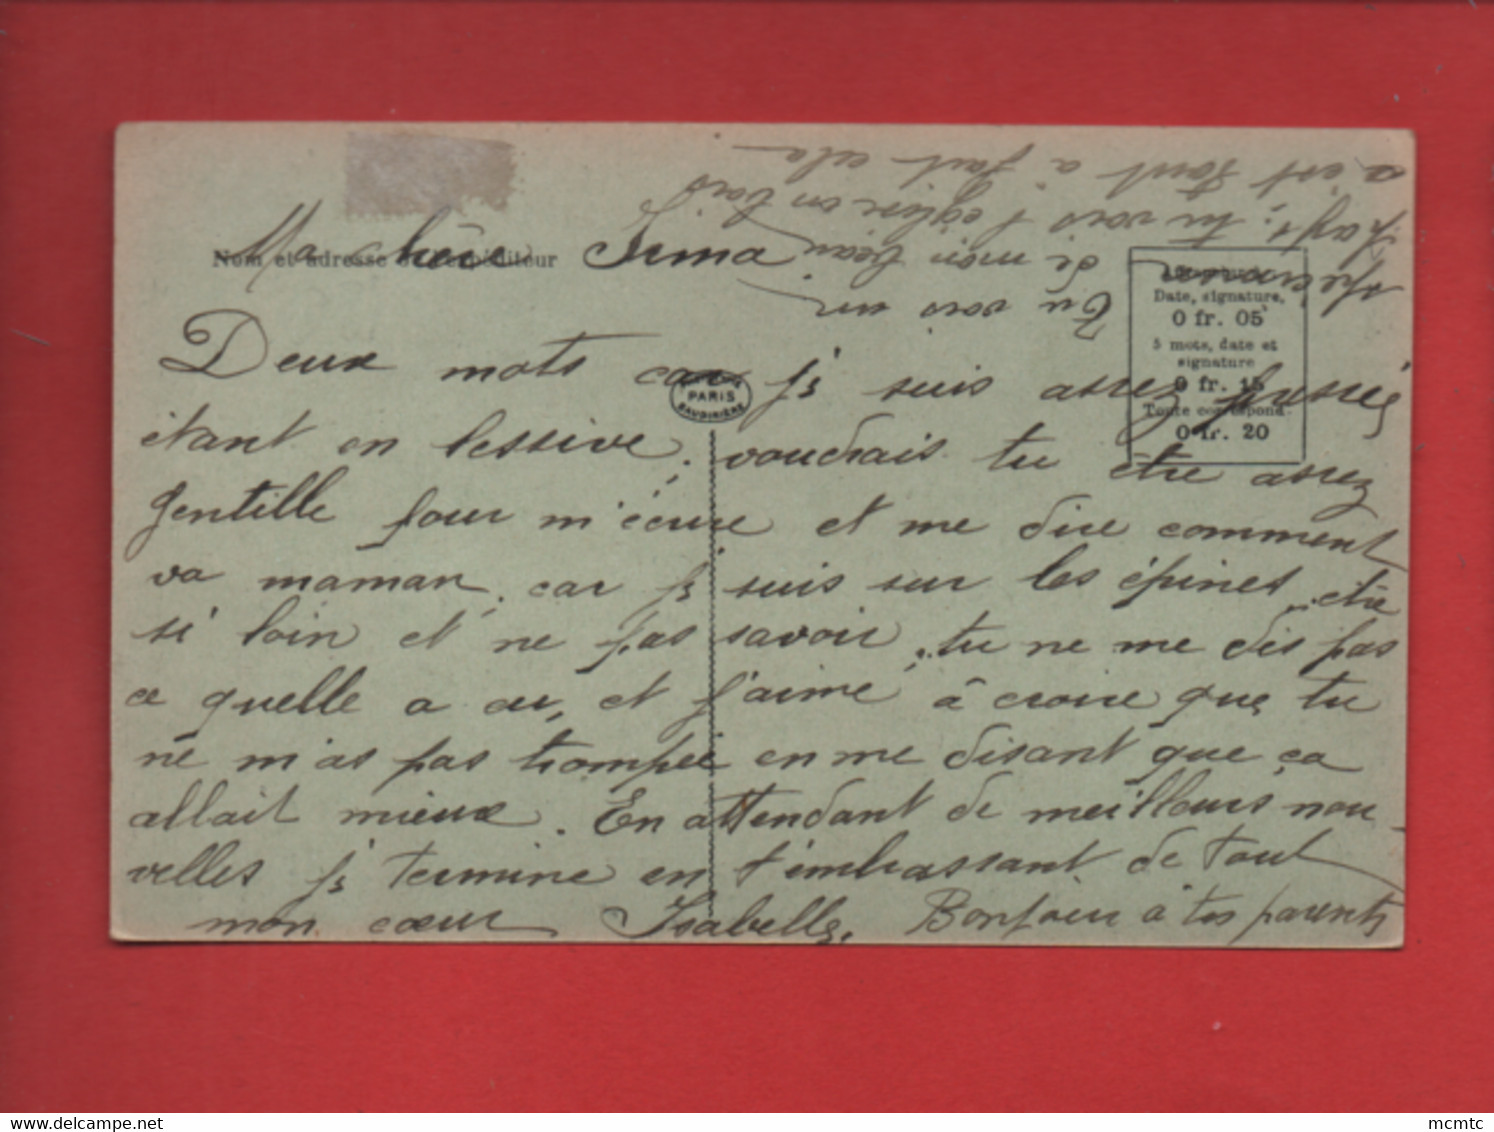 Nom et adresse de l'expéditeur
Ma chère Irma
Deux mots car je suis assez pressée
étant en lessive, voudrais tu être assez
gentille pour m'écrire et me dire comment
va maman, car je suis sur les épines, être
si loin et ne pas savoir, tu ne me dis pas
ce quelle a eu, et j'aime à croire que tu
ne m'as pas trompée en me disant que ça
allait mieux. En attendant de meilleurs nou-
velles je termine en t'embrassant de tout
mon cœur Isabelle. Bonjour à tes parents
Tu vois un
spécimen de mon beau
pays, tu vois l'église en bois
c'est tout à fait cela
PARIS
BAUDINIÈRE
Date, signature,
0 fr. 05
5 mots, date et
signature
0 fr. 15
Toute correspond.
0 fr. 20
www.delcampe.net
mcmtc